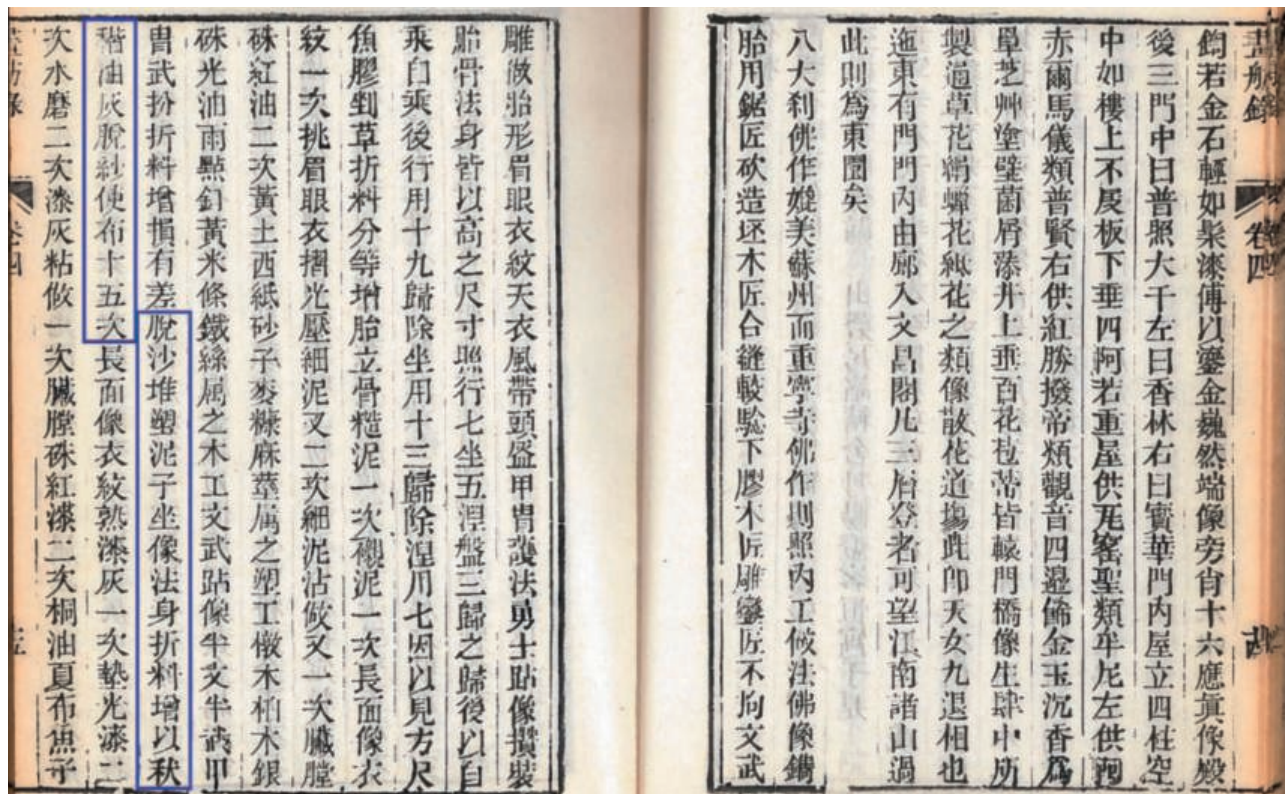 畫舫錄
卷四
鈞若金石輕如髹漆傅以鎏金巍然端像旁肖十六應眞像殿
後三門中曰普照大千左曰香林右曰寶華門內屋立四柱空
中如樓上不反板下垂四阿若重屋供瓦窰聖類牟尼左供
赤爾馬儀類普賢右供紅勝撥帝類觀音四邊佈金玉沉香爲
單芝艸塗壁菌屑藻井上垂百花苞蒂皆轅門橋像生肆中所
製通草花絹蠟花紙花之類像散花道塲此卽天女九退相也
迤東有門門內由廊入文昌閣凡三層登者可望江南諸山過
此則爲東園矣
八大刹佛作媲美蘇州而重寧寺佛作則照內工做法佛像鐫
胎用鋸匠砍造坯木匠合縫較驗下膠木匠雕鑾匠不拘文武
雕做胎形眉眼衣紋天衣風帶頭盔甲冑護法勇士跕像攢裝
胎骨法身皆以高之尺寸照行七坐五涅盤三歸之歸後以自
乘自乘後行用十九歸除坐用十三歸除涅用七因以見方尺
魚膠剉草折料分等增胎立骨糙泥一次襯泥一次長面像衣
紋一次挑眉眼衣摺光壓細泥又二次細泥沾做又一次臟膛
硃紅油二次黃土西紙砂子麥糠麻莖屬之塑工橔木柏木銀
硃光油雨點釘黃米條鐵絲屬之木工文武跕像半文半武甲
冑武扮折料增損有差脫沙堆塑泥子坐像法身折料增以秋
稭油灰脫紗使布十五次長面像衣紋熟漆灰一次墊光漆二
次水磨二次漆灰粘做一次臟膛硃紅漆二次桐油夏布魚子
卷四